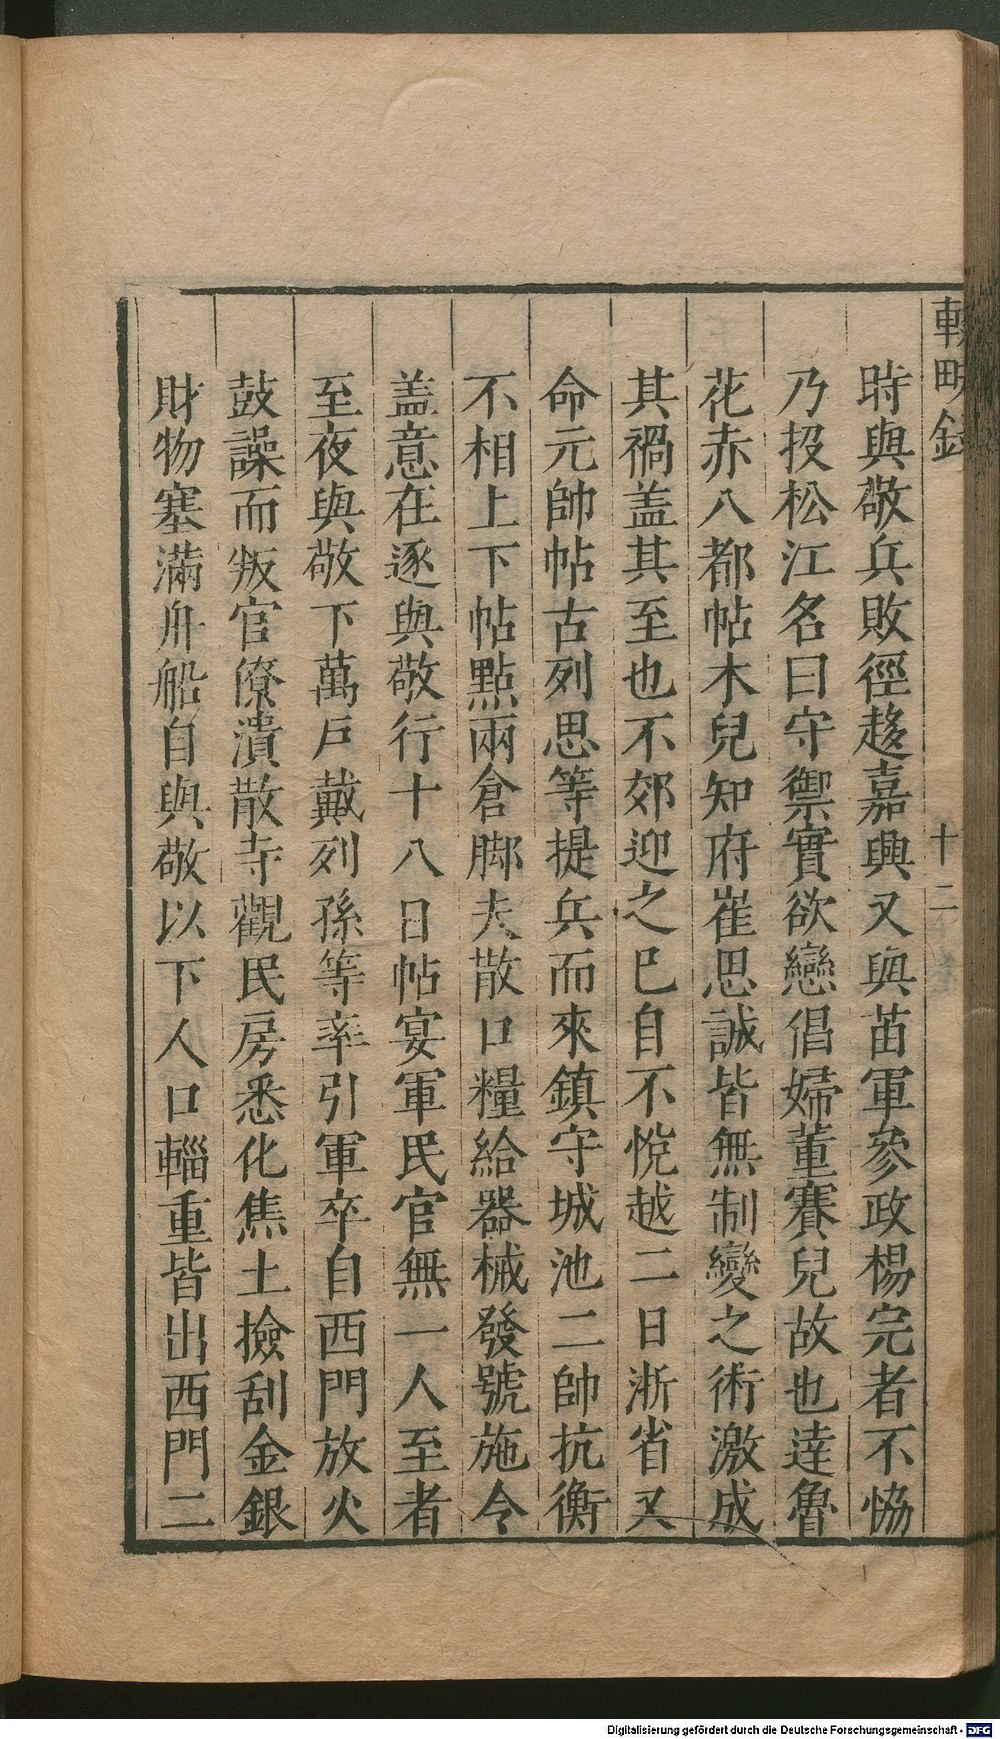 輟畊錄 十二
時與敬兵敗徑趍嘉興又與苗軍參政楊完者不恊
乃投松江名曰守禦實欲戀倡婦董賽兒故也達魯
花赤八都帖木兒知府崔思誠皆無制變之術激成
其禍盖其至也不郊迎之巳自不悅越二日浙省又
命元帥帖古列思等提兵而來鎮守城池二帥抗衡
不相上下帖點兩倉脚夫散口糧給器械發號施令
盖意在逐與敬行十八日帖宴軍民官無一人至者
至夜與敬下萬戶戴列孫等率引軍卒自西門放火
鼓譟而叛官僚潰散寺觀民房悉化焦土撿刮金銀
財物塞滿舟船自與敬以下人口輜重皆出西門二
Digitalisierung gefördert durch die Deutsche Forschungsgemeinschaft - DFG